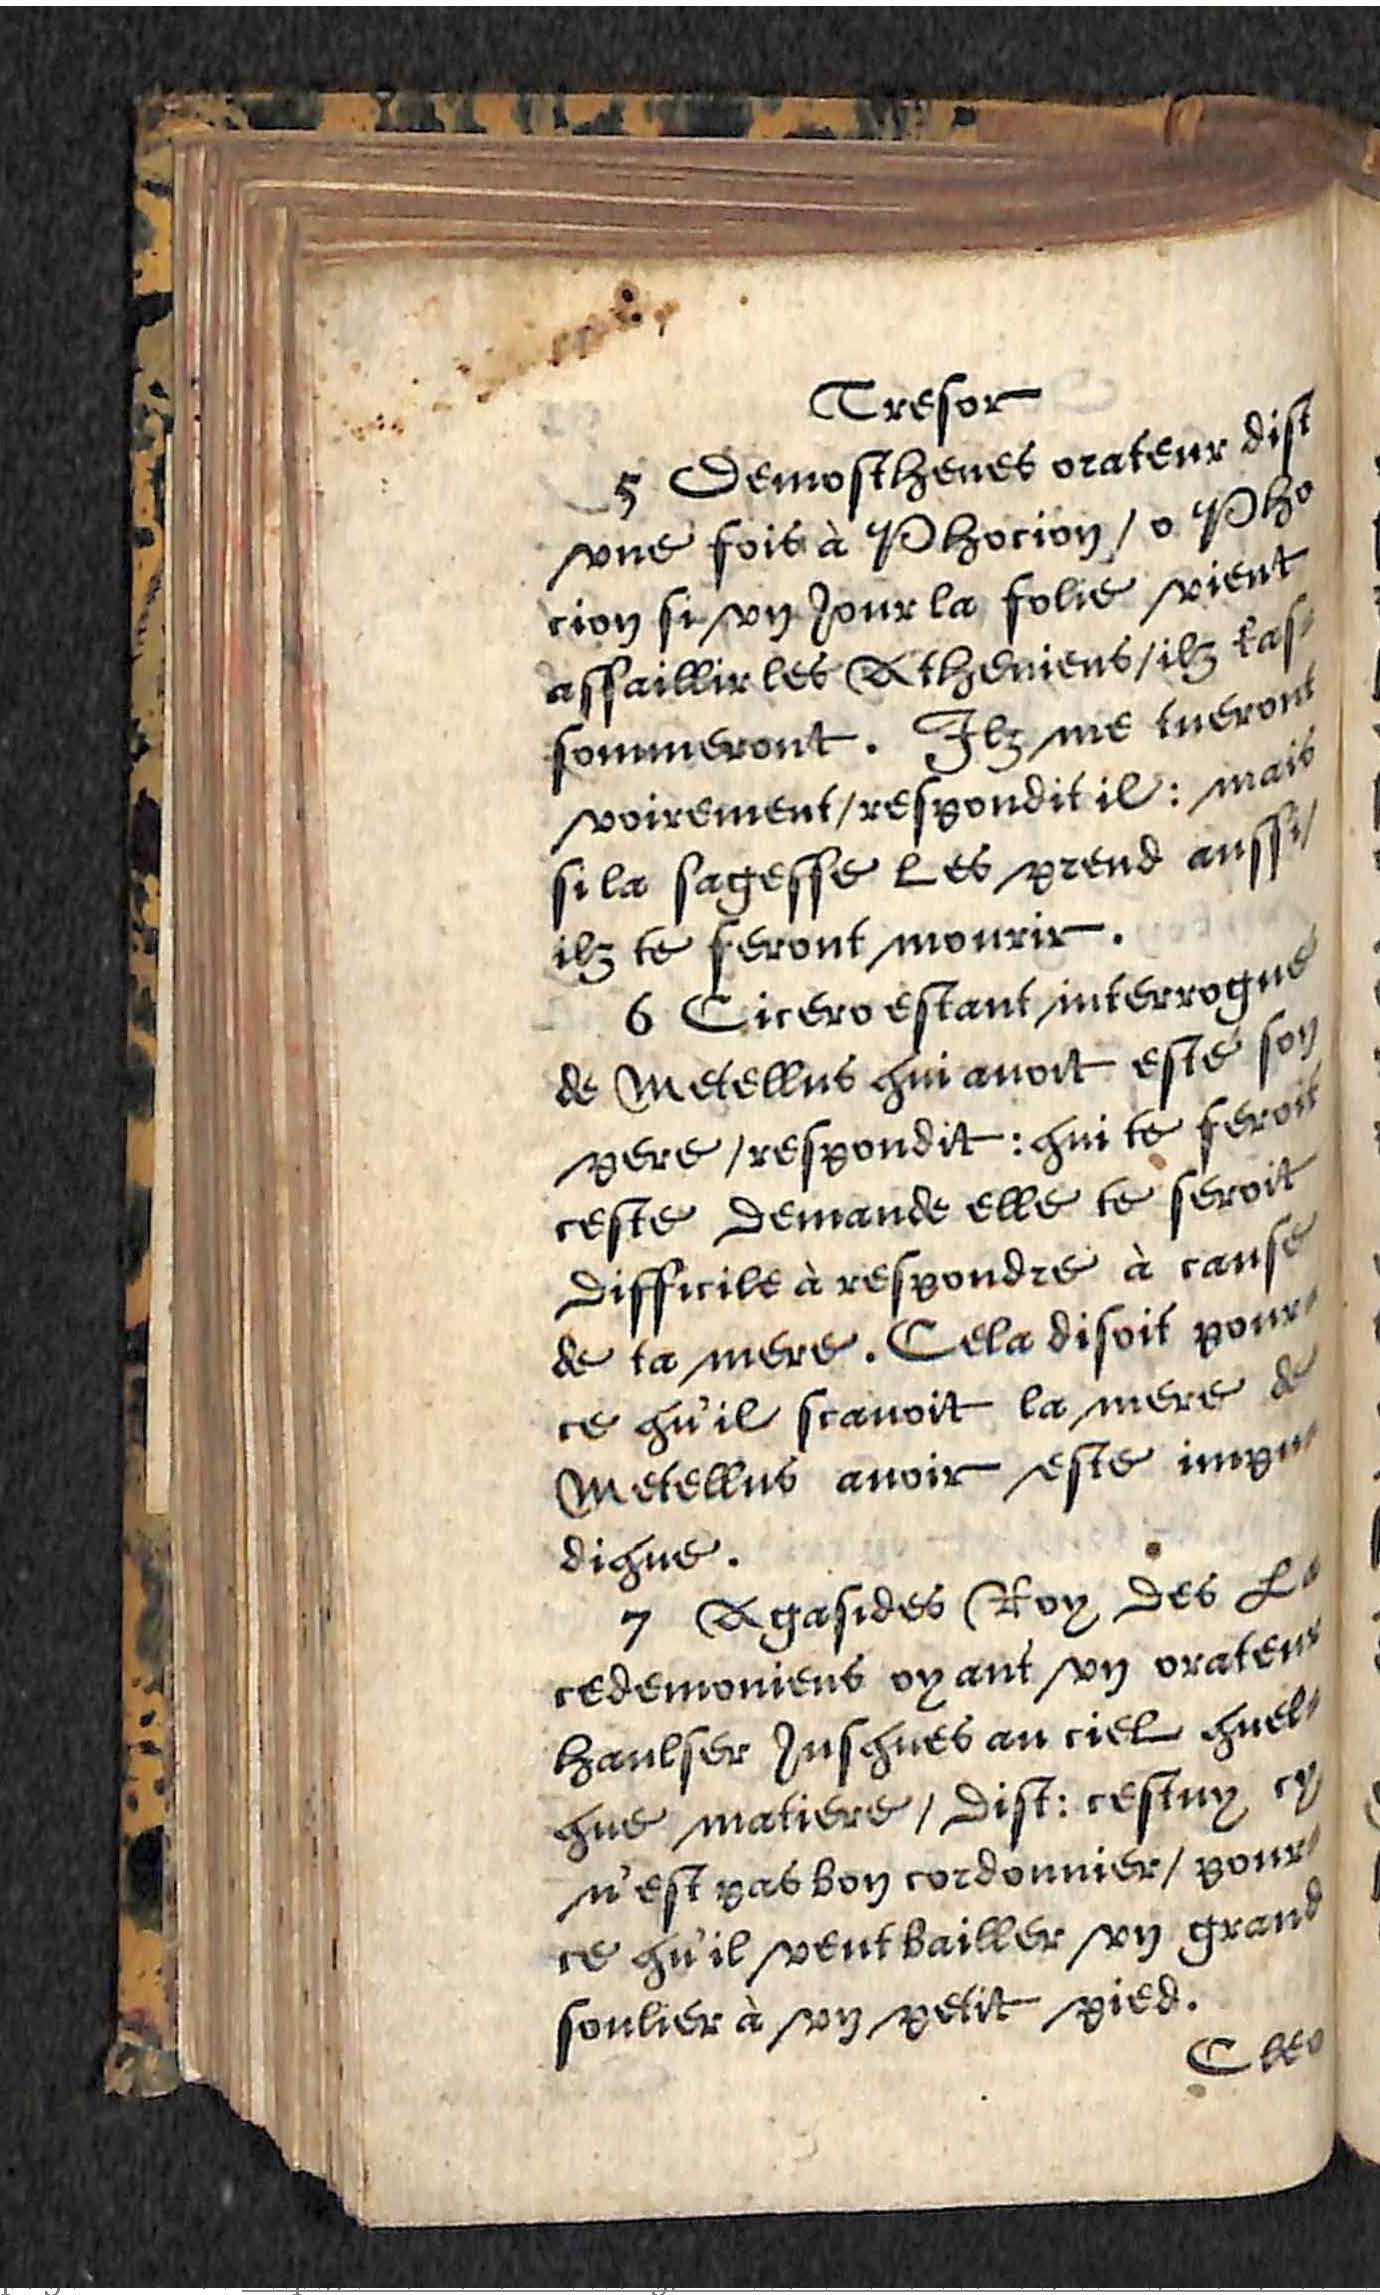 Tresor
5 Demosthenes orateur dist
vne fois à Phocion / o Pho
cion si vn Jour la folie vient
assaillir les Atheniens / ilz t'as-
sommeront. Ilz me tueront
voirement / respondit il : mais
si la sagesse Les prend aussi /
ilz te feront mourir.
6 Cicero estant interrogue
de Metellus qui auoit esté son
pere / respondit : qui te feroit
ceste Demande elle te seroit
Difficile à respondre à cause
de ta mere. Cela disoit pour-
ce qu'il scauoit la mere de
Metellus auoir este impu-
dique.
7 Agasides Roy Des La
cedemoniens oyant vn orateur
haulser Jusques au ciel quel-
que matiere / Dist : cestuy cy
n'est pas bon cordonnier / pour-
ce qu'il veut bailler vn grand
soulier à vn petit pied.
Cleo